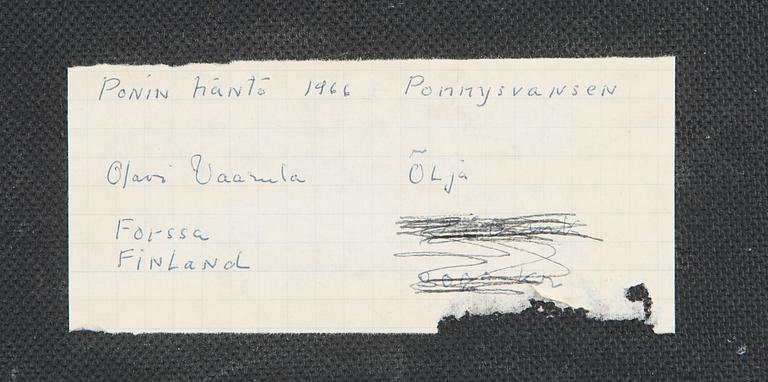 Ponin häntä 1966 Ponnysvansen
Olavi Vaarula Ölja
Forssa
FinLand